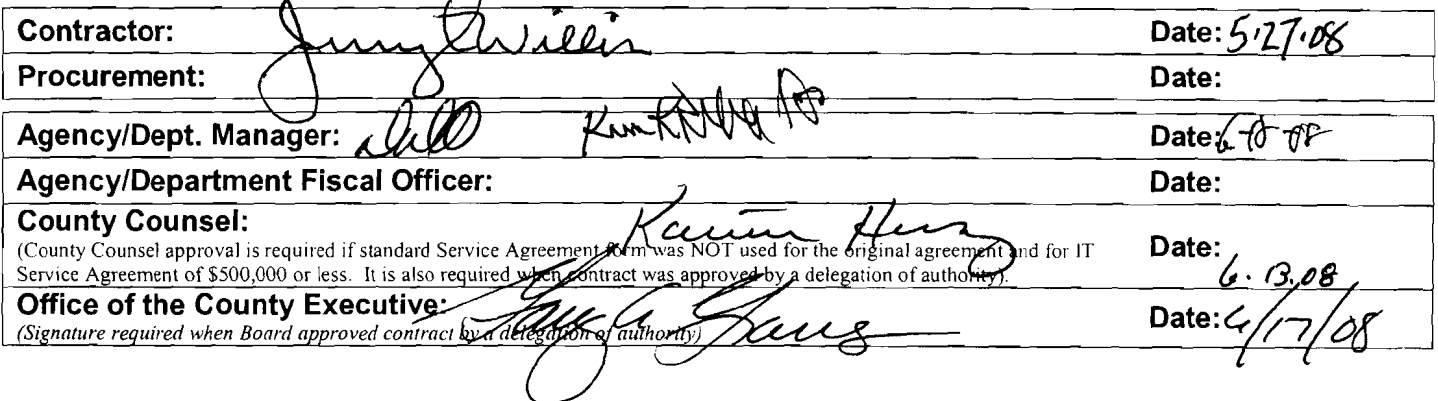 Contractor: Jerry Willis Date: 5·27·08
Procurement: Date:
Agency/Dept. Manager: Date:
Agency/Department Fiscal Officer: Date:
County Counsel:
(County Counsel approval is required if standard Service Agreement form was NOT used for the original agreement and for IT Date:
Service Agreement of $500,000 or less. It is also required when contract was approved by a delegation of authority). 6.13.08
Office of the County Executive: Date: 6/17/08
(Signature required when Board approved contract by a delegation of authority)